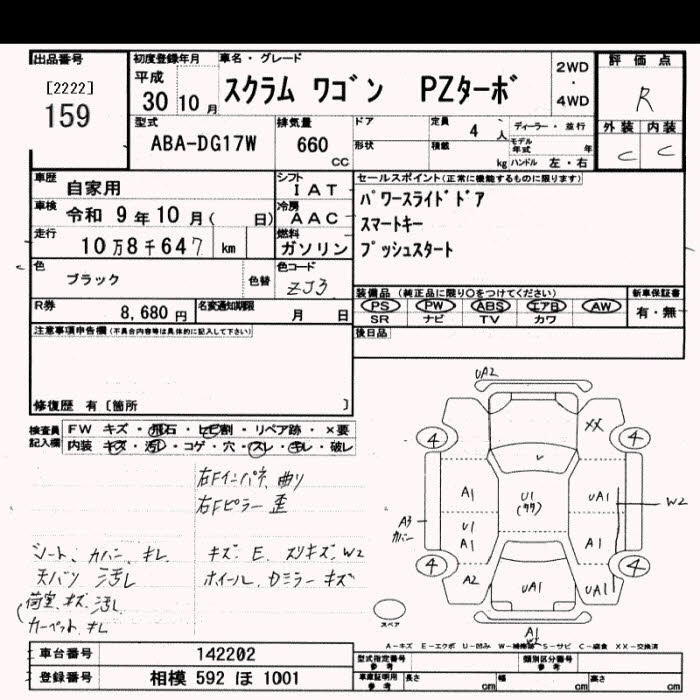 出品番号
[2222]
159
初度登録年月
平成
30 10 月
車名・グレード
スクラム ワゴン PZターボ
2WD
・
4WD
評価点
R
外装 内装
C C
型式
ABA-DG17W
排気量
660
CC
ドア
形状
定員
4 人
積載
kg
ディーラー・並行
モデル年式 年
ハンドル 左・右
車歴 自家用
車検 令和 9 年 10 月( 日)
走行 10 万 8 千 647 km
シフト
IAT
冷房
AAC
燃料
ガソリン
セールスポイント(正常に機能するものに限ります)
パワースライドドア
スマートキー
プッシュスタート
色 ブラック 色替
色コード
ZJ3
R券 8,680 円
名変通知期限 月 日
装備品 (純正品に限り○をつけてください)
PS PW ABS エアB AW
SR ナビ TV カワ
新車保証書
有・無
後日品
注意事項申告欄(不具合内容等は具体的に記入して下さい)
修復歴 有〔箇所 〕
検査員
記入欄
FW キズ・飛石・ヒビ割・リペア跡・×要
内装 キズ・汚れ・コゲ・穴・スレ・キレ・破レ
右Fインパネ 曲リ
右Fピラー 歪
シート、カバー、キレ
天バリ 汚れ
荷室、キズ、汚れ
カーペット、キレ
キズ、E、スリキズ、W2
ホイール、ロミラー キズ
UA2
XX
4
4
A1
U1
A1
A2
A3
カバー
U1
UA1
A1
UA1
W2
4
4
UA1
A1
スペア
A-キズ E-エクボ U-凹み W-補修跡 S-サビ C-腐食 XX-交換済
車台番号 142202
登録番号 相模 592 ほ 1001
型式指定番号
参考
類別区分番号
参考
車庫証明用
参考
長さ cm 幅 cm 高さ cm